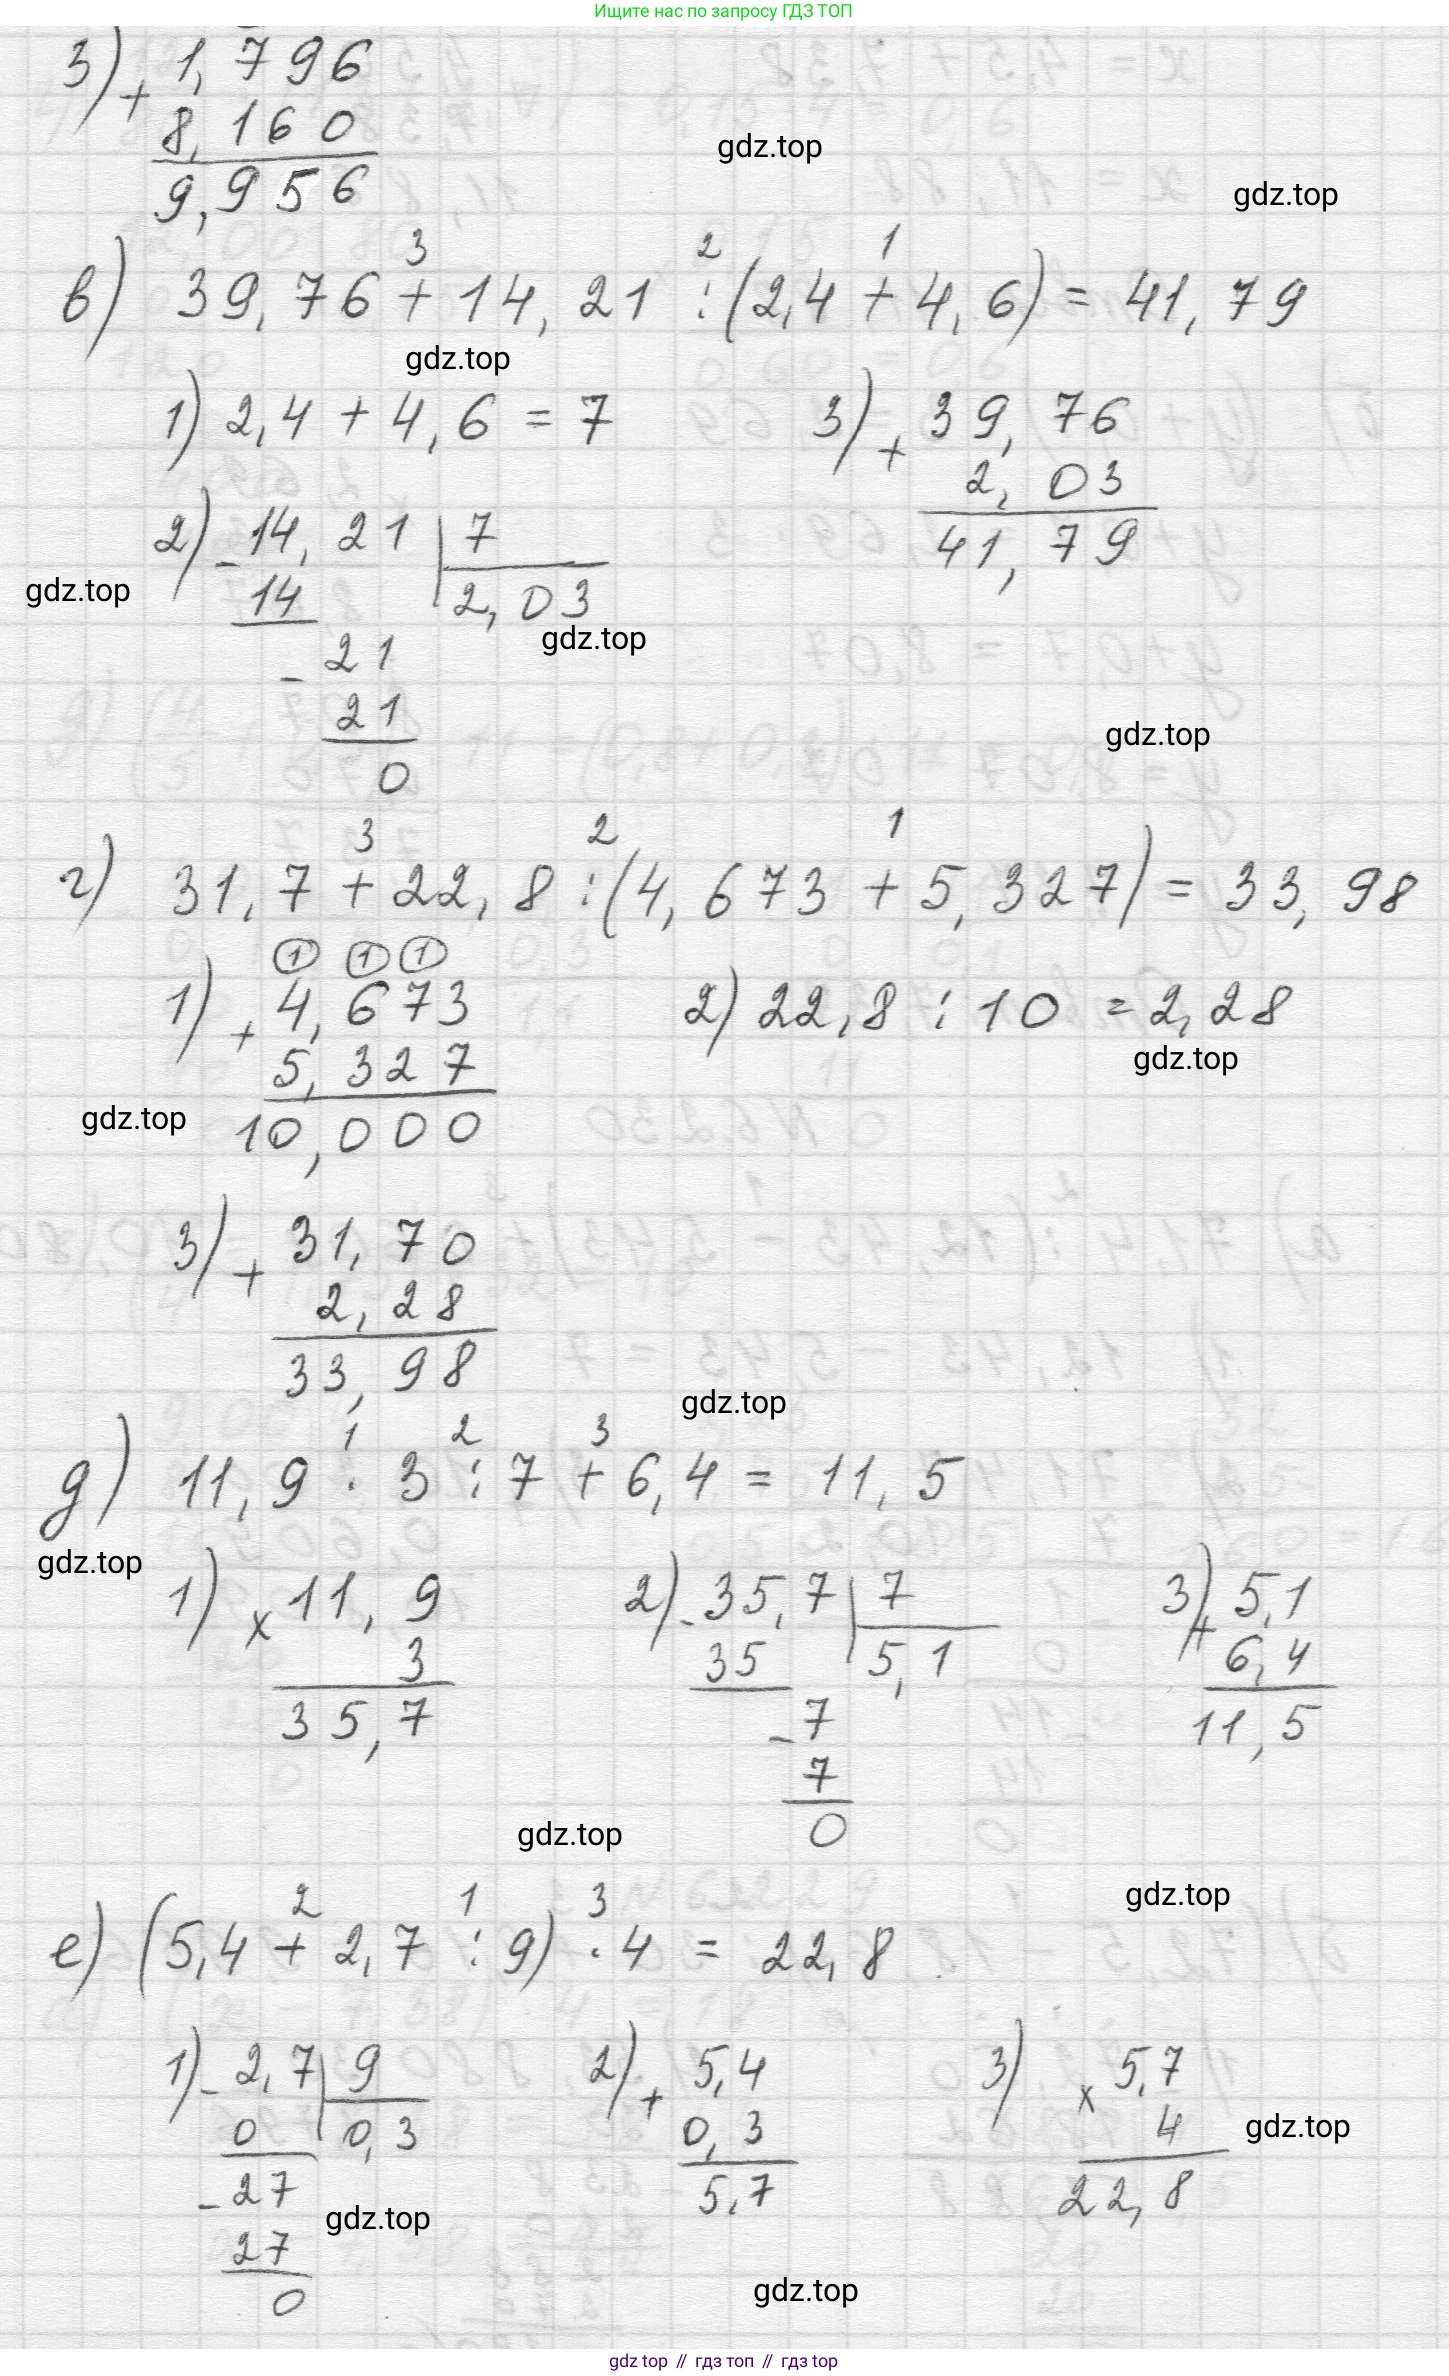 Ищите нас по запросу ГДЗ ТОП
3) + 1,796
8,160
9,956
gdz.top
gdz.top
3 2 1
в) 39,76 + 14,21 : (2,4 + 4,6) = 41,79
gdz.top
1) 2,4 + 4,6 = 7
2) - 14,21 | 7
14 2,03
- 21
21
0
3) + 39,76
2,03
41,79
gdz.top
gdz.top
gdz.top
3 2 1
г) 31,7 + 22,8 : (4,673 + 5,327) = 33,98
1 1 1
1) + 4,673
5,327
10,000
2) 22,8 : 10 = 2,28
gdz.top
gdz.top
3) + 31,70
2,28
33,98
gdz.top
1 2 3
д) 11,9 · 3 : 7 + 6,4 = 11,5
gdz.top
1) × 11,9
3
35,7
2) - 35,7 | 7
35 5,1
- 7
7
0
3) + 5,1
6,4
11,5
gdz.top
gdz.top
2 1 3
е) (5,4 + 2,7 : 9) · 4 = 22,8
1) - 2,7 | 9
0 0,3
- 27
27
0
2) + 5,4
0,3
5,7
3) × 5,7
4
22,8
gdz.top
gdz.top
gdz.top
gdz top // гдз топ // гдз top